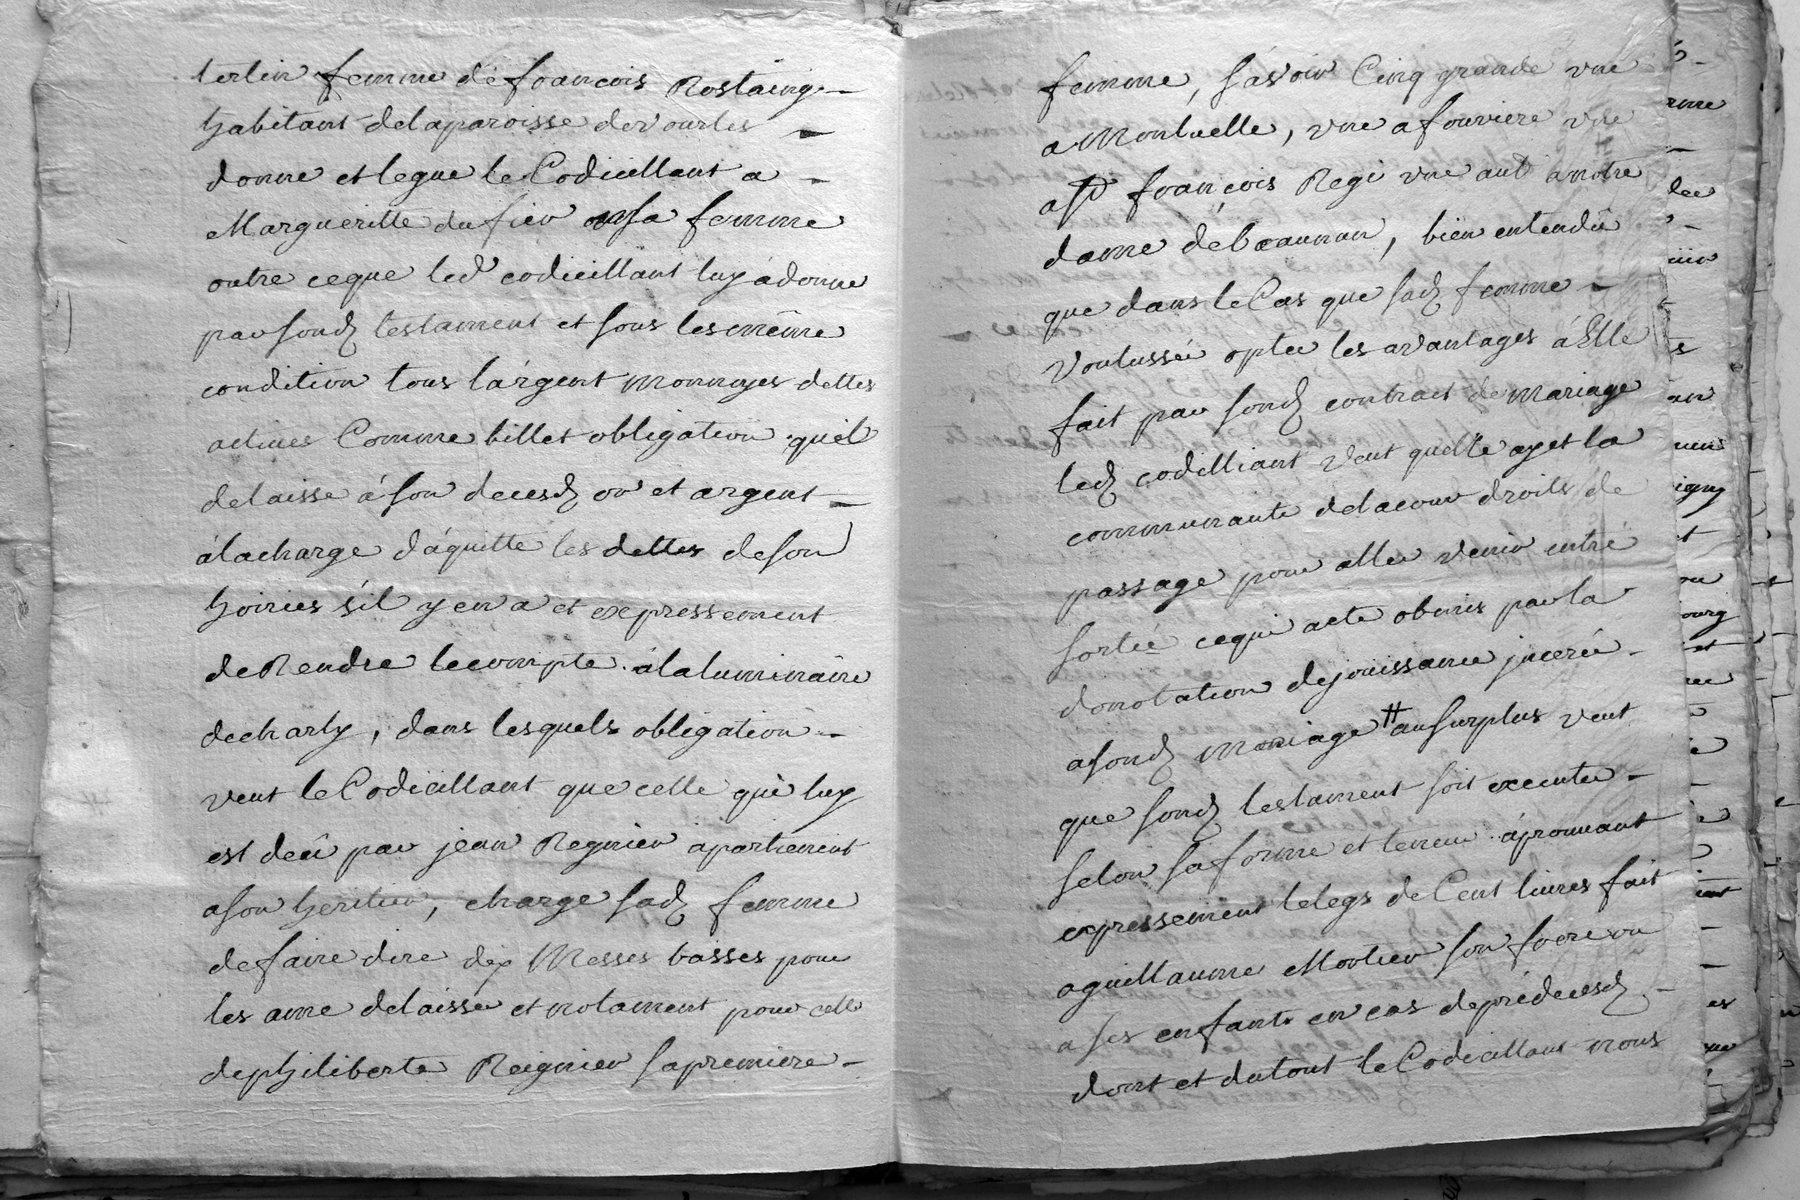 terlin femme dé francois Rostaing
habitant delaparoisse devourles
donne et legue le Codicillant a
Margueritte dufieu sa femme
outre ceque led codicillant luy à donne
par sond testament et sous les même
condition tous l'argent monnoyes dettes
actives Comme billet obligation quil
delaisse á son decesd or et argent
álacharge d'áquitte les dettes deson
hoiries s'il y en a et expressement
de Rendre lecompte álaluminaire
decharly, dans lesquels obligation
veut le Codicillant que celle qui luy
est deû par jean Regnier apartienent
ason heritier, charge sad femme
defaire dire dix Messes basses pour
les ame delaisse et notament pour celle
dephiliberte Reignier sapremiere
femme, sávoir Cinq grande une
a Montuelle, une a fourviere une
a St francois Regi une aut anotre
dame débeaunan, bien entendû
que dans le Cas que sad femme
voulussée opter les avantages á Elle
fait par sond contract de Mariage
led codilliant veut quelle ayet la
communaute delacour droits de
passage pour aller venir entré
sortie cequi acte obmis parla
donotation dejouissance jncerée
a sond mariage # ausurplus veut
que sond testament soit execute
selon sa forme et teneur áprouvant
expressement lelegs de Cent livres fait
a guillaume Mortier son frere ou
a ses enfants en cas deprédecesd
dont et dutout le Codicillant nous